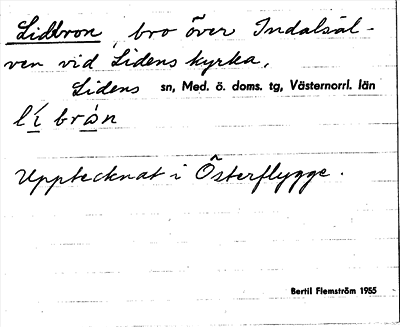 Lidbron, bro över Indalsäl-
ven vid Lidens kyrka.
Lidens sn, Med. ö. doms. tg, Västernorrl. län
li bròn
Upptecknat i Österflygge.
Bertil Flemström 1955